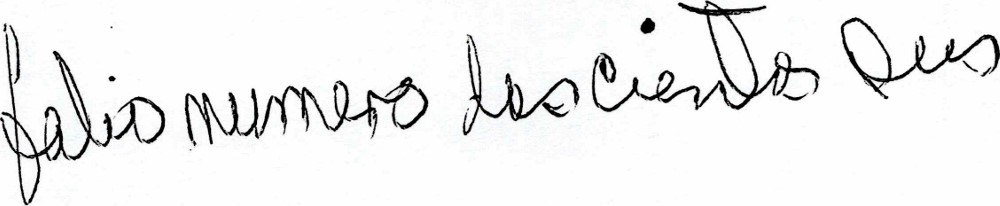 folio numero doscientos seis